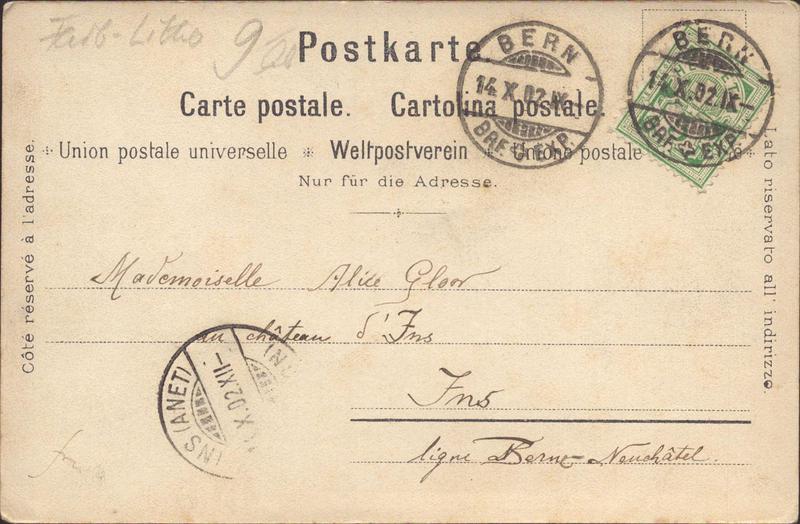 Farb-Litho
Postkarte.
Carte postale. Cartolina postale.
Union postale universelle * Weltpostverein * Unione postale
Nur für die Adresse.
Côté réservé à l'adresse.
Lato riservato all' indirizzo.
BERN
14.X.02.IX–
BRF. EXP.
BERN
14.X.02.IX–
BRF. EXP.
Mademoiselle Alice Gloor
au château d'Ins
Ins
ligne Berne-Neuchâtel.
INS (ANET)
X.02.XII–